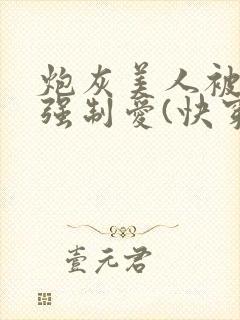 炮灰美人被
强制爱(快穿
壹元君